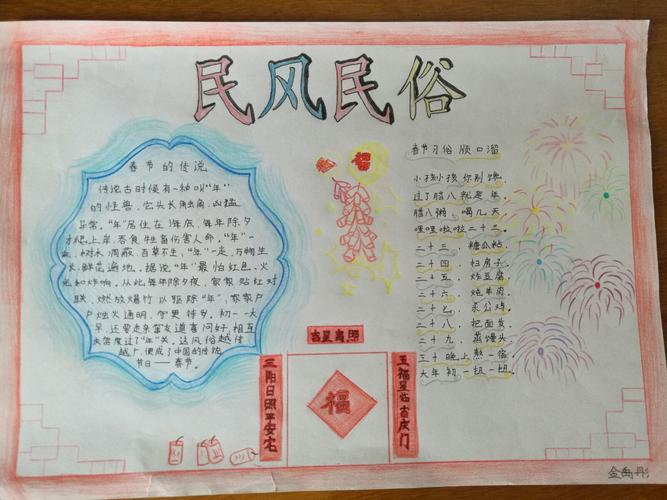 民风民俗
春节的传说
传说古时候有一种叫“年”
的怪兽，它头长角，凶猛
异常。“年”居住在海底，每年除夕
才爬上岸，吞食牲畜伤害人命。“年”一
来，树木凋蔽，百草不生，“年”一走，万物生
长，鲜花遍地。据说“年”最怕红色、火
光和炸响，从此每年除夕夜，家家贴红对
联、燃放爆竹以驱除“年”，家家户
户烛火通明，守更待岁，初一一大
早，还要走亲窜友道喜问好，相互
庆贺度过了“年”关。这风俗越传
越广，便成了中国的传统
节日——春节。
福
春节习俗顺口溜
小孩小孩你别馋，
过了腊八就是年。
腊八粥，喝几天
哩哩啦啦二十三。
二十三，糖瓜粘。
二十四，扫房子。
二十五，炸豆腐。
二十六，炖羊肉。
二十七，杀公鸡。
二十八，把面发。
二十九，蒸馒头
三十晚上熬一宿
大年初一扭一扭
吉星高照
三阳日照平安宅
福
五福星临吉庆门